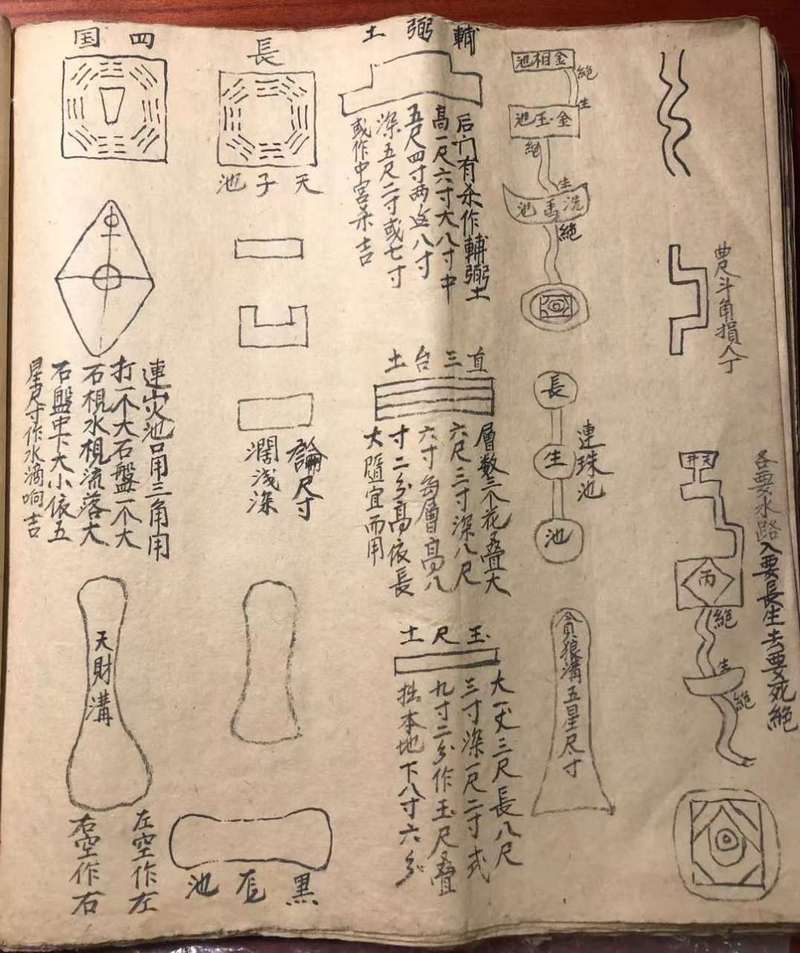 各要水路入要長生去要死絕
曲尺斗角損人丁
天井
丙
絕
生
絕
金相池
絕
生
金玉池
絕
生
洗馬池
絕
連珠池
長
生
池
貪狼溝五星尺寸
輔弼土
后门有杀作輔弼土
高一尺六寸大八寸中
五尺四寸两边八寸
深五尺二寸或七寸
或作中宫杀吉
直三台土
層数三个花叠大
六尺三寸深八尺
六寸每層高八
寸二分高依長
大隨宜而用
玉尺土
大一丈三尺長八尺
三寸深一尺二寸式
九寸二分作玉尺叠
拙本地下八寸六分
長
天子池
論尺寸
濶浅深
黑
池
四国
連火池口用三角用
打一个大石盤一个大
石梘水梘流落大
石盤中下大小依五
星尺寸作水滴响吉
天財溝
左空作左
右空作右